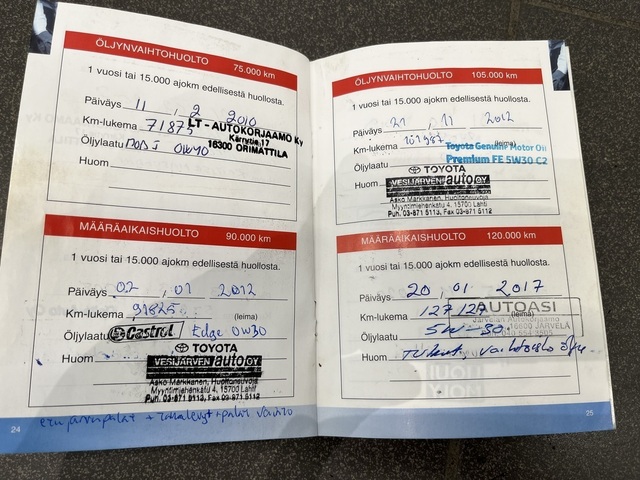 ÖLJYNVAIHTOHUOLTO 75.000 km
1 vuosi tai 15.000 ajokm edellisestä huollosta.
Päiväys 11 , 2 2010
Km-lukema 71875 LT - AUTOKORJAAMO Ky
Kärrytie 17
Öljylaatu 0W40 16300 ORIMATTILA
Huom
MÄÄRÄAIKAISHUOLTO 90.000 km
1 vuosi tai 15.000 ajokm edellisestä huollosta.
Päiväys 02 , 01 2012
Km-lukema 91825 (leima)
Öljylaatu Castrol Edge 0W30
Huom TOYOTA
VESIJÄRVEN auto OY
Asko Markkanen, Huoltoneuvoja
Myyntimiehenkatu 4, 15700 Lahti
Puh. 03-871 5113, Fax 03-871 5112
24
ÖLJYNVAIHTOHUOLTO 105.000 km
1 vuosi tai 15.000 ajokm edellisestä huollosta.
Päiväys 21 , 11 2012
Km-lukema
Toyota Genuine Motor Oil
Öljylaatu Premium FE 5W30 C2
TOYOTA
Huom VESIJÄRVEN auto OY
Asko Markkanen, Huoltoneuvoja
Myyntimiehenkatu 4, 15700 Lahti
Puh. 03-871 5113, Fax 03-871 5112
MÄÄRÄAIKAISHUOLTO 120.000 km
1 vuosi tai 15.000 ajokm edellisestä huollosta.
Päiväys 20 , 01 2017
Km-lukema 127127 (leima)
AUTOASI
16600 JÄRVELÄ
Öljylaatu 5W-30
Huom
25